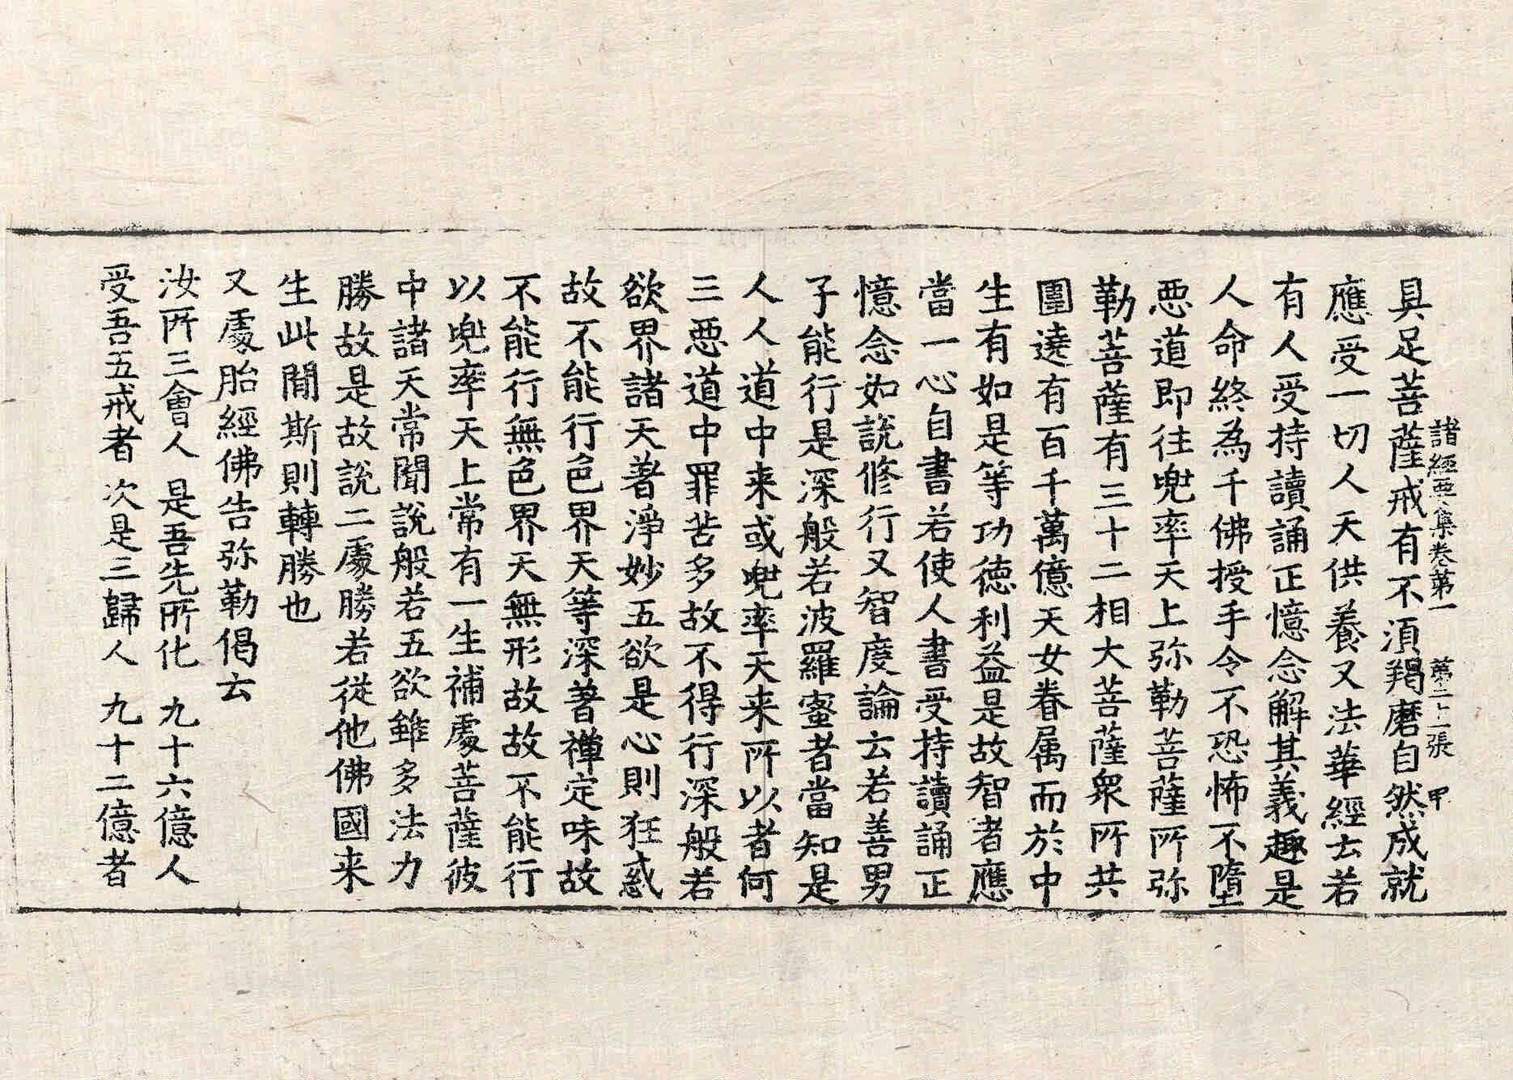 諸經要集卷第一　第二十二張　甲
具足菩薩戒有不湏羯磨自然成就
應受一切人天供養又法華經云若
有人受持讀誦正憶念解其義趣是
人命終為千佛授手令不恐怖不墮
恶道即往兜率天上弥勒菩薩所弥
勒菩薩有三十二相大菩薩衆所共
圍遶有百千萬億天女眷属而於中
生有如是等功德利益是故智者應
當一心自書若使人書受持讀誦正
憶念如說修行又智度論云若善男
子能行是深般若波羅蜜者當知是
人人道中来或兜率天来所以者何
三恶道中罪苦多故不得行深般若
欲界諸天著淨妙五欲是心則狂惑
故不能行色界天等深著禪定味故
不能行無色界天無形故故不能行
以兜率天上常有一生補處菩薩彼
中諸天常聞說般若五欲雖多法力
勝故是故說二處勝若從他佛國来
生此間斯則轉勝也
又處胎經佛告弥勒偈云
汝所三會人　是吾先所化　九十六億人
受吾五戒者　次是三歸人　九十二億者